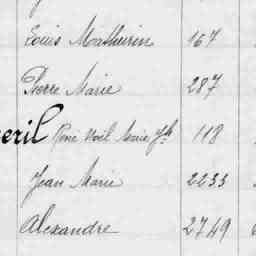 Louis Mathurin 167
Pierre Marie 287
eril René Noël Marie fls 118
Jean Marie 2233
Alexandre 2749